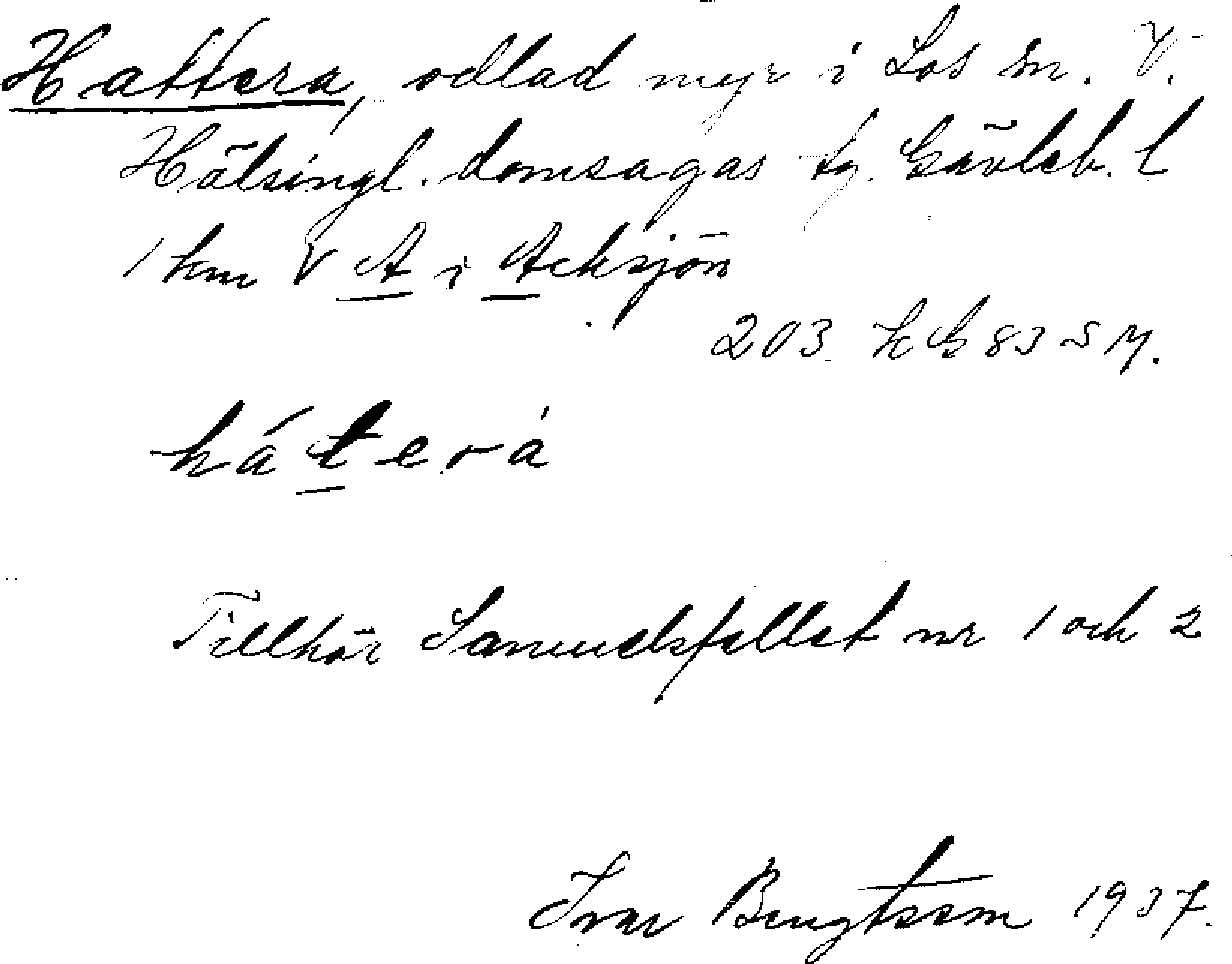 Hattera, odlad myr i Los sn. V.
Hälsingl. domsagas tg. Gävleb. l
1 km V A i Acksjön
203. kG 83 S M.
hátera
Tillhör Samuelsfallet nr 1 och 2
Ivar Bengtsson 1937.